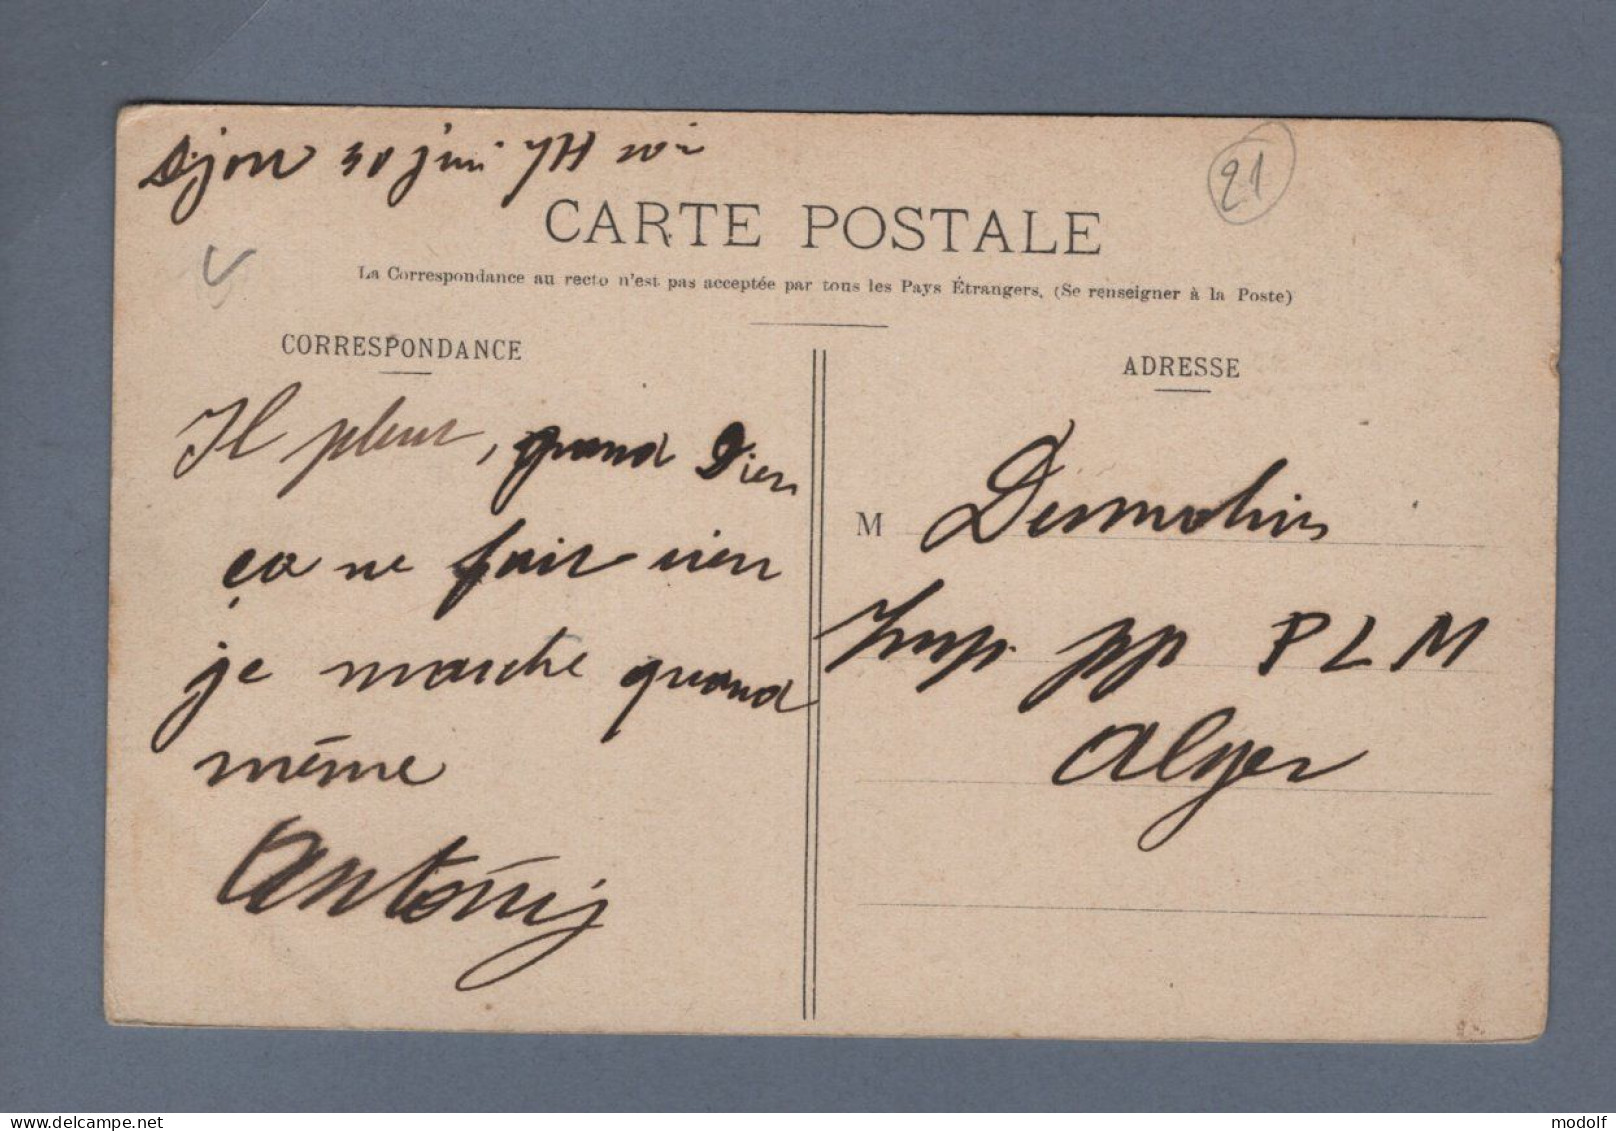 Dijon 30 juin 7H soir
21
CARTE POSTALE
La Correspondance au recto n'est pas acceptée par tous les Pays Étrangers. (Se renseigner à la Poste)
CORRESPONDANCE
Il pleut, grand Dieu
ça ne fait rien
je marche quand
même
Antonij
ADRESSE
M Desmolins
Insp. pp PLM
Alger
delcampe.net
modolf